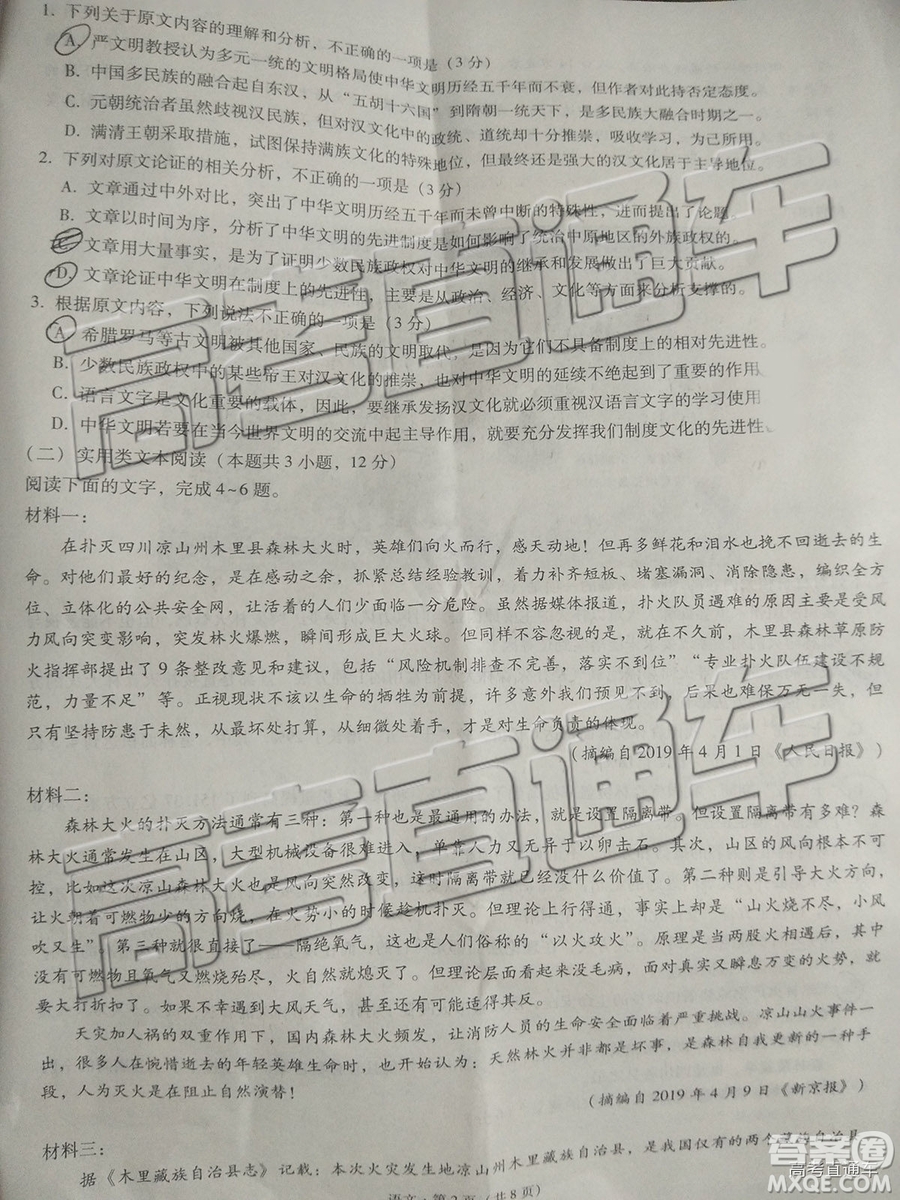 1. 下列关于原文内容的理解和分析，不正确的一项是（3 分）
A. 严文明教授认为多元一统的文明格局使中华文明历经五千年而不衰，但作者对此持否定态度。
B. 中国多民族的融合起自东汉，从“五胡十六国”到隋朝一统天下，是多民族大融合时期之一。
C. 元朝统治者虽然歧视汉民族，但对汉文化中的政统、道统却十分推崇，吸收学习，为己所用。
D. 满清王朝采取措施，试图保持满族文化的特殊地位，但最终还是强大的汉文化居于主导地位。
2. 下列对原文论证的相关分析，不正确的一项是（3 分）
A. 文章通过中外对比，突出了中华文明历经五千年而未曾中断的特殊性，进而提出了论题。
B. 文章以时间为序，分析了中华文明的先进制度是如何影响了统治中原地区的外族政权的。
C. 文章用大量事实，是为了证明少数民族政权对中华文明的继承和发展做出了巨大贡献。
D. 文章论证中华文明在制度上的先进性，主要是从政治、经济、文化等方面来分析支撑的。
3. 根据原文内容，下列说法不正确的一项是（3 分）
A. 希腊罗马等古文明被其他国家、民族的文明取代，是因为它们不具备制度上的相对先进性。
B. 少数民族政权中的某些帝王对汉文化的推崇，也对中华文明的延续不绝起到了重要作用。
C. 语言文字是文化重要的载体，因此，要继承发扬汉文化就必须重视汉语言文字的学习使用
D. 中华文明若要在当今世界文明的交流中起主导作用，就要充分发挥我们制度文化的先进性
（二）实用类文本阅读（本题共 3 小题，12 分）
阅读下面的文字，完成 4~6 题。
材料一：
在扑灭四川凉山州木里县森林大火时，英雄们向火而行，感天动地！但再多鲜花和泪水也挽不回逝去的生
命。对他们最好的纪念，是在感动之余，抓紧总结经验教训，着力补齐短板、堵塞漏洞、消除隐患，编织全方
位、立体化的公共安全网，让活着的人们少面临一分危险。虽然据媒体报道，扑火队员遇难的原因主要是受风
力风向突变影响，突发林火爆燃，瞬间形成巨大火球。但同样不容忽视的是，就在不久前，木里县森林草原防
火指挥部提出了 9 条整改意见和建议，包括“风险机制排查不完善，落实不到位”“专业扑火队伍建设不规
范，力量不足”等。正视现状不该以生命的牺牲为前提，许多意外我们预见不到，后果也难保万无一失，但
只有坚持防患于未然，从最坏处打算，从细微处着手，才是对生命负责的体现。
（摘编自 2019 年 4 月 1 日《人民日报》）
材料二：
森林大火的扑灭方法通常有三种：第一种也是最通用的办法，就是设置隔离带。但设置隔离带有多难？森
林大火通常发生在山区，大型机械设备很难进入，单靠人力又无异于以卵击石。其次，山区的风向根本不可
控，比如这次凉山森林大火也是风向突然改变，这时隔离带就已经没什么价值了。第二种则是引导大火方向，
让火朝着可燃物少的方向烧，在火势小的时候趁机扑灭。但理论上行得通，事实却是“山火烧不尽，小风
吹又生”。第三种就很直接了——隔绝氧气，这也是人们俗称的“以火攻火”。原理是当两股火相遇，中间
没有可燃物且氧气又燃烧殆尽，火自然就熄灭了。但理论层面看起来没毛病，面对真实又瞬息万变的火势，就
要大打折扣了。如果不幸遇到大风天气，甚至还有可能适得其反。
天灾加人祸的双重作用下，国内森林大火频发，让消防人员的生命安全面临着严重挑战。凉山山火事件一
出，很多人在惋惜逝去的年轻英雄生命时，也开始认为：天然林火并非都是坏事，是森林自我更新的一种手
段，人为灭火是在阻止自然演替！
（摘编自 2019 年 4 月 9 日《新京报》）
材料三：
据《木里藏族自治县志》记载：本次火灾发生地凉山州木里藏族自治县，是我国仅有的两个藏族自治县
语文·第 2 页（共 8 页）
高考直通车
高考直通车
答案圈
高考直通车
MXQE.COM